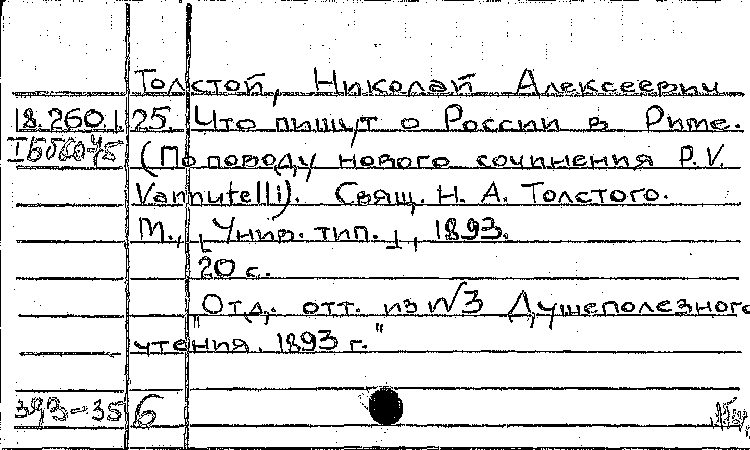 Толстой, Николай Алексеевич
18.260.1.25. Что пишут о России в Риме.
(По поводу нового сочинения P.V.
Vannutelli). Свящ. Н. А. Толстого.
М., [Унив. тип.], 1893.
20 с.
"Отд. отт. из №3 Душеполезного
чтения. 1893 г."
393-35 б